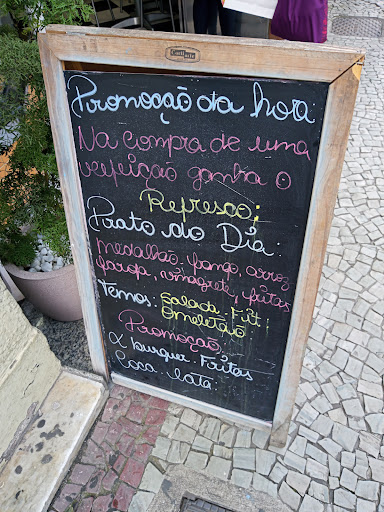 Promoção da hora
Na compra de uma
refeição ganha o
Refresco;
Prato do Dia:
medalhão, frango, arroz
farofa, vinagrete, fritas
Temos. Salada. Fit;
Omeletão
Promoção,
X burguer. Fritas
Coca. lata.